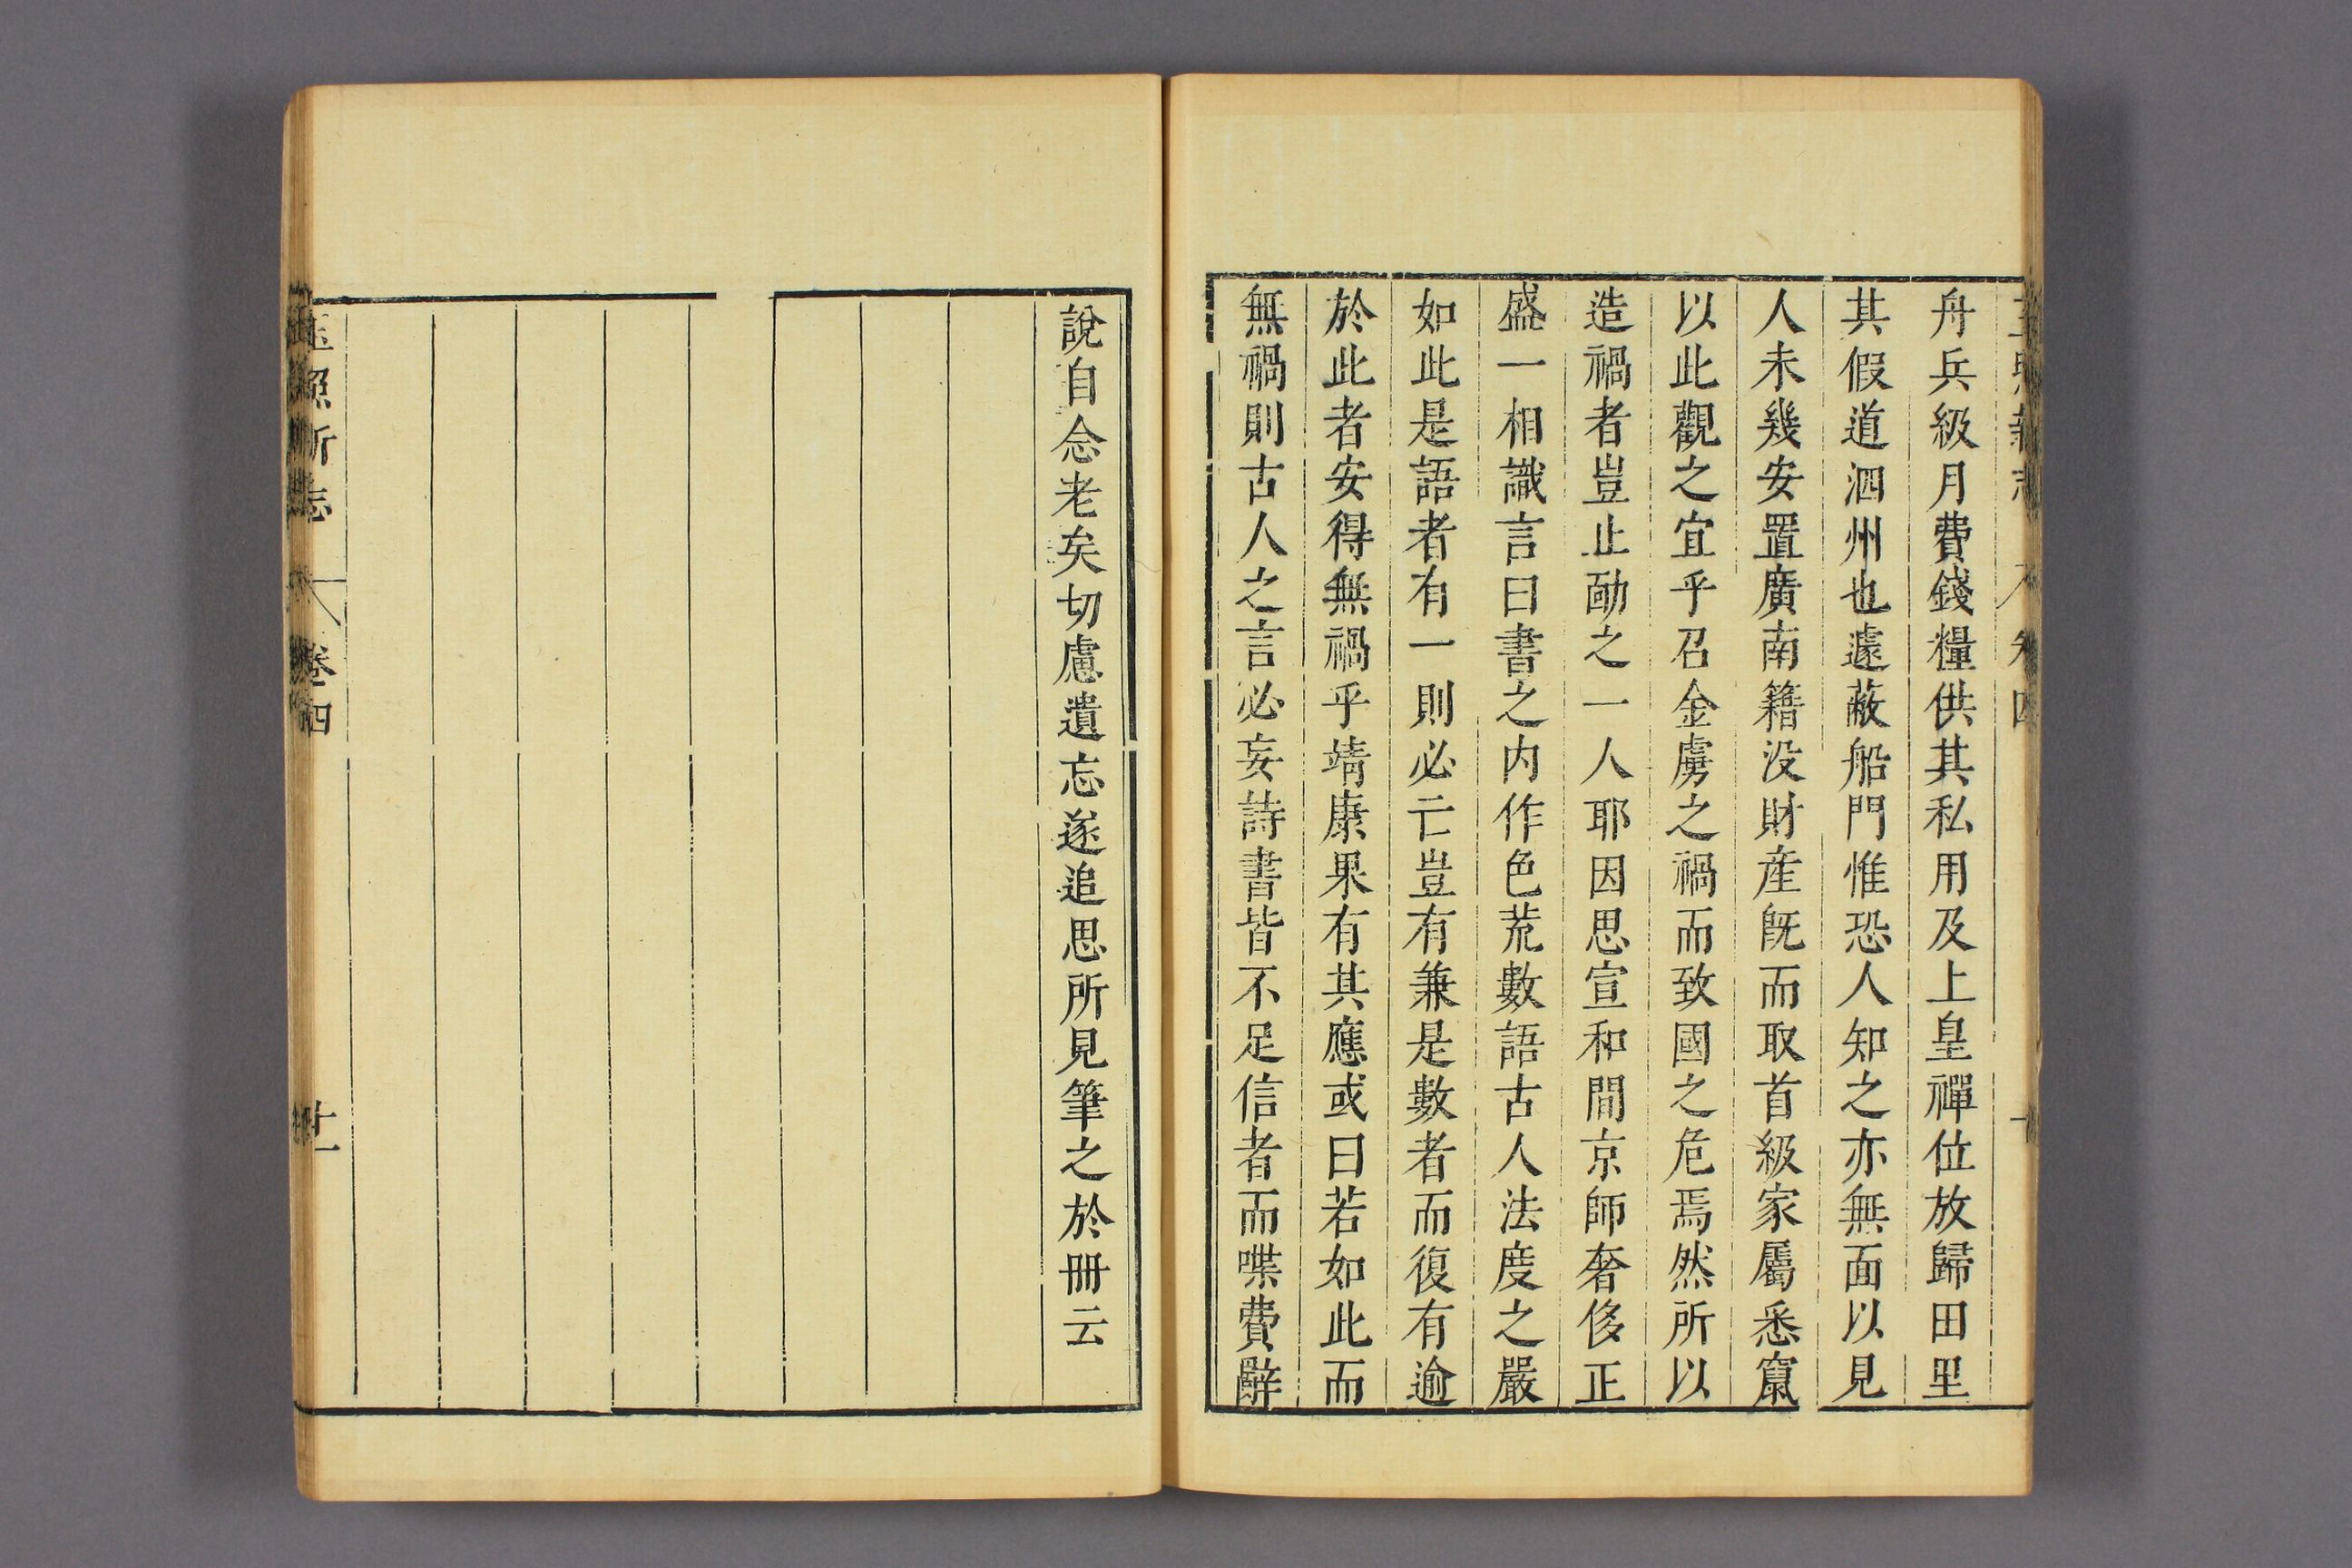 舟兵級月費錢糧供其私用及上皇禪位放歸田里
其假道泗州也遽蔽船門惟恐人知之亦無面以見
人未幾安置廣南籍没財產旣而取首級家屬悉竄
以此觀之宜乎召金虜之禍而致國之危焉然所以
造禍者豈止勔之一人耶因思宣和間京師奢侈正
盛一相識言曰書之内作色荒數語古人法度之嚴
如此是語者有一則必亡豈有兼是數者而復有逾
於此者安得無禍乎靖康果有其應或曰若如此而
無禍則古人之言必妄詩書皆不足信者而喋費辭
說自念老矣切慮遺忘遂追思所見筆之於冊云
玉照新志 卷四 十一